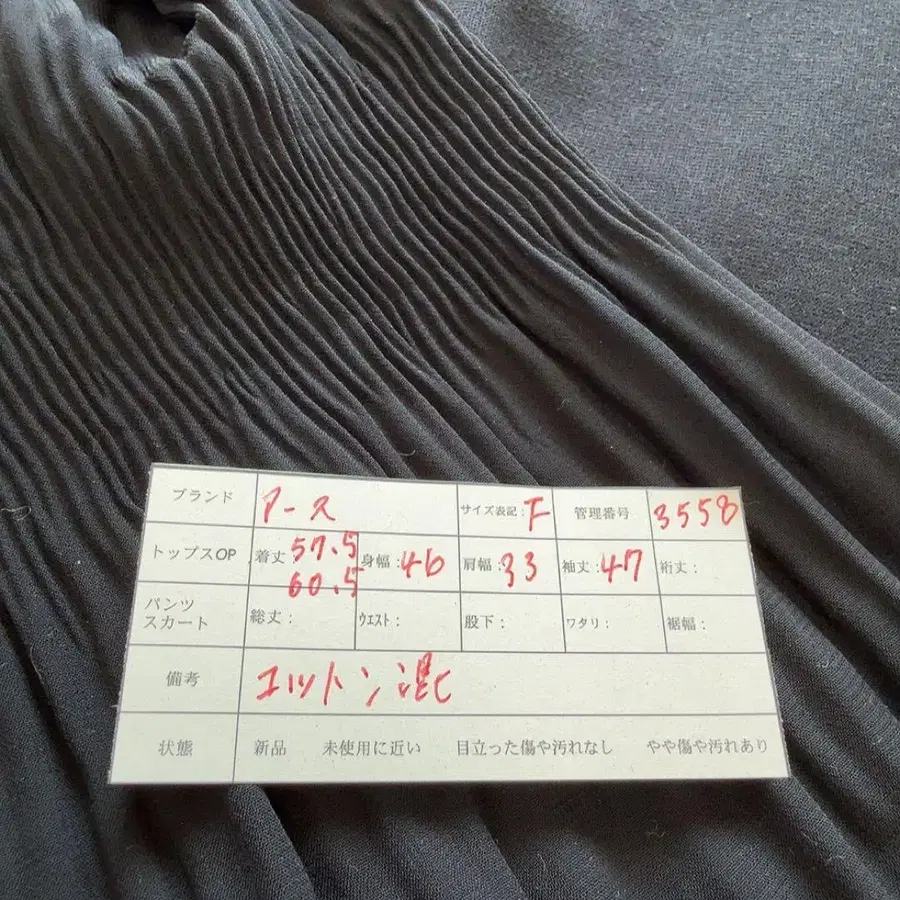 ブランド アース サイズ表記:F 管理番号 3558
トップスOP 着丈 57.5 身幅:46 肩幅:33 袖丈:47 裄丈:
60.5
パンツ
スカート 総丈: ウエスト: 股下: ワタリ: 裾幅:
備考 コットン混
状態 新品 未使用に近い 目立った傷や汚れなし やや傷や汚れあり